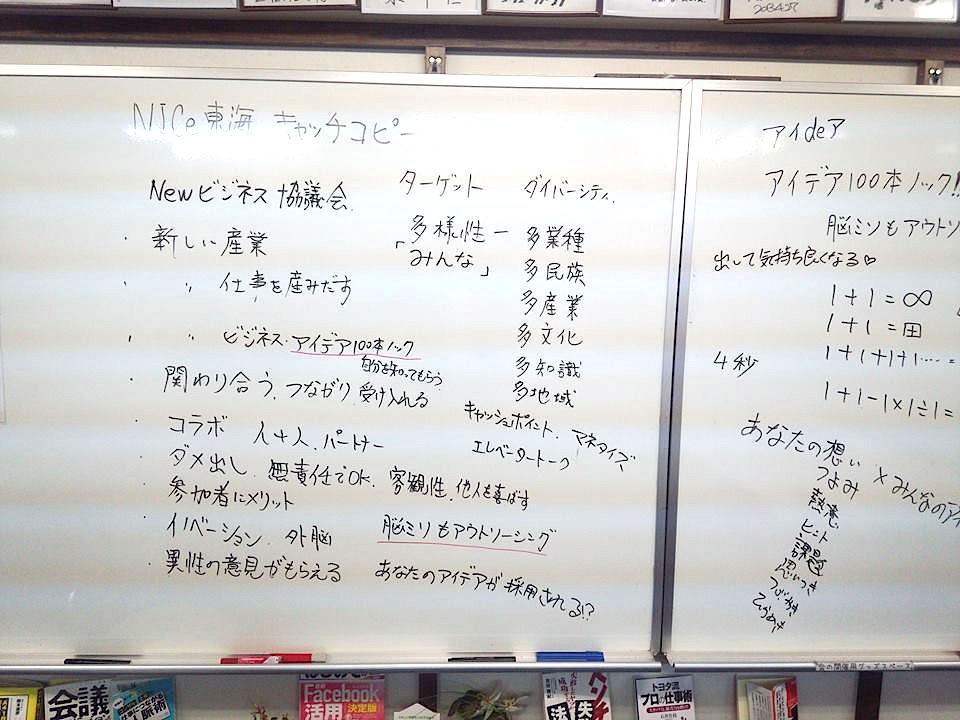 NICe 東海 キャッチコピー
Newビジネス 協議会
・新しい産業
・ 〃 仕事を産みだす
・ 〃 ビジネス・アイデア100本ノック
自分を知ってもらう
・関わり合う、つながり 受け入れる
・コラボ 人+人、パートナー
・ダメ出し、無責任でOK、客観性、他人も喜ばす
・参加者にメリット
・イノベーション、外脳 脳ミソもアウトソーシング
・異性の意見がもらえる あなたのアイデアが採用される!?
ターゲット
「多様性ー
みんな」
ダイバーシティ
多業種
多民族
多産業
多文化
多知識
多地域
キャッシュポイント、マネタイズ
エレベータートーク
アイdeア
アイデア100本ノック!!
脳ミソもアウトソ
出して気持ち良くなる♡
1+1=∞
1+1=田
4秒 1+1+1+1‥‥=
1+1-1×1÷1=
あなたの想い × みんなのアイ
つよみ
熱意
ヒント
課題
思いつき
つぶやき
ひらめき
会の開催用グッズスペース
会議
Facebook
活用
決定版
トヨタ流
プロの仕事術